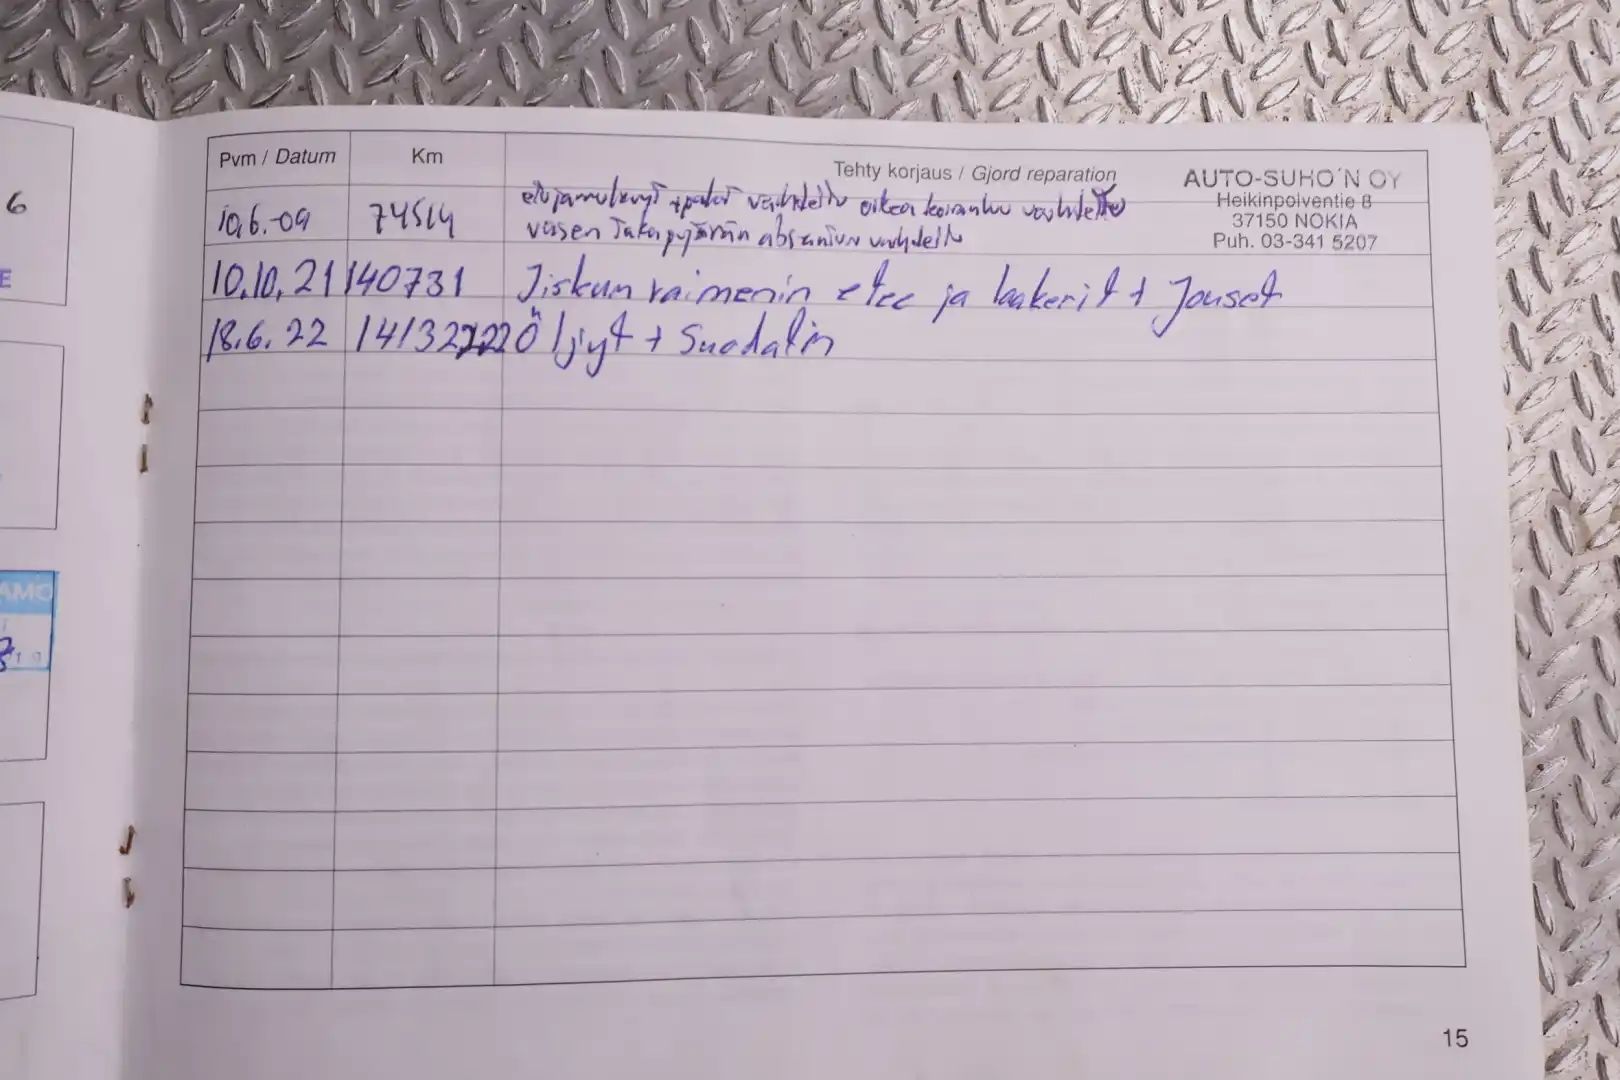 6
E
AMO
19
Pvm / Datum
Km
Tehty korjaus / Gjord reparation
AUTO-SUHO'N OY
Heikinpolventie 8
37150 NOKIA
Puh. 03-341 5207
10.6.-09 74514 etujarrulevyt + palat vaihdettu oikea koiranluu vaihdettu
vasen takapyörän abs anturi vaihdettu
10.10.21 140731 Jiskun vaimenin etee ja laakerit + Jouset
18.6.22 Öljyt + Suodatin
15